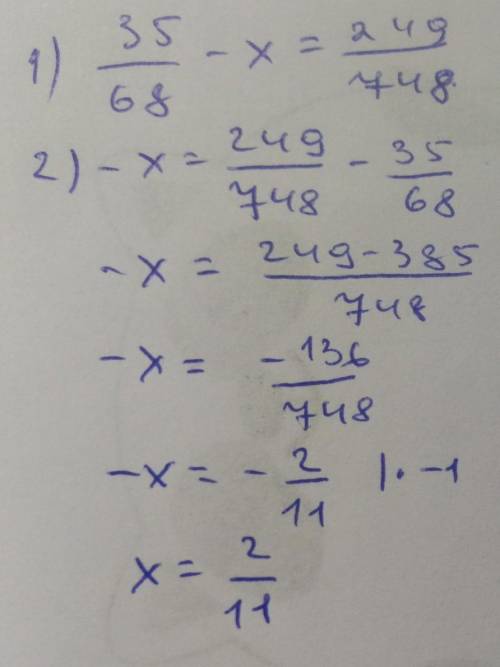 1) 35/68 - x = 249/748
2) - x = 249/748 - 35/68
-x = 249-385/748
-x = -136/748
-x = - 2/11 |· -1
x = 2/11